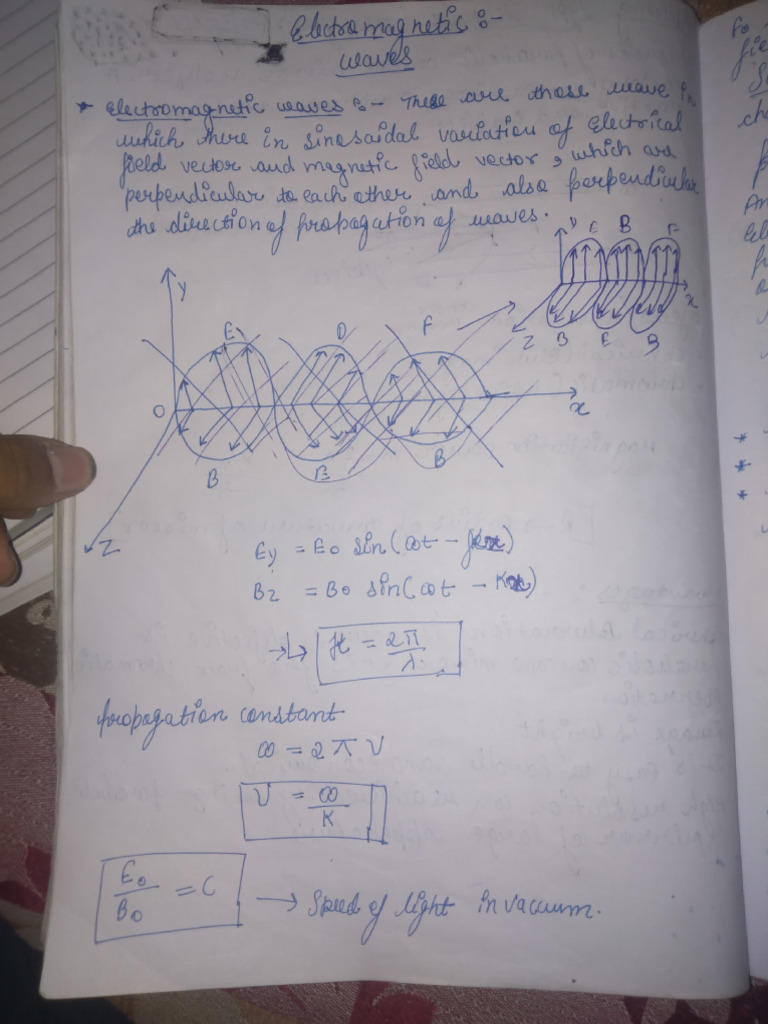 Electromagnetic :-
waves
* Electromagnetic waves :- These are those wave in
which there in sinosaidal variation of Electrical
field vector and magnetic field vector, which are
perpendicular to each other and also perpendicular
the direction of propagation of waves.
y E B E
x
Z B E B
y
E F
O x
B E B
Z
Ey = E0 sin(ωt - Kx)
Bz = B0 sin(ωt - Kx)
→↳ K = 2π/λ
propagation constant
ω = 2πν
V = ω/K
E0/B0 = C → Speed of light in vacuum.